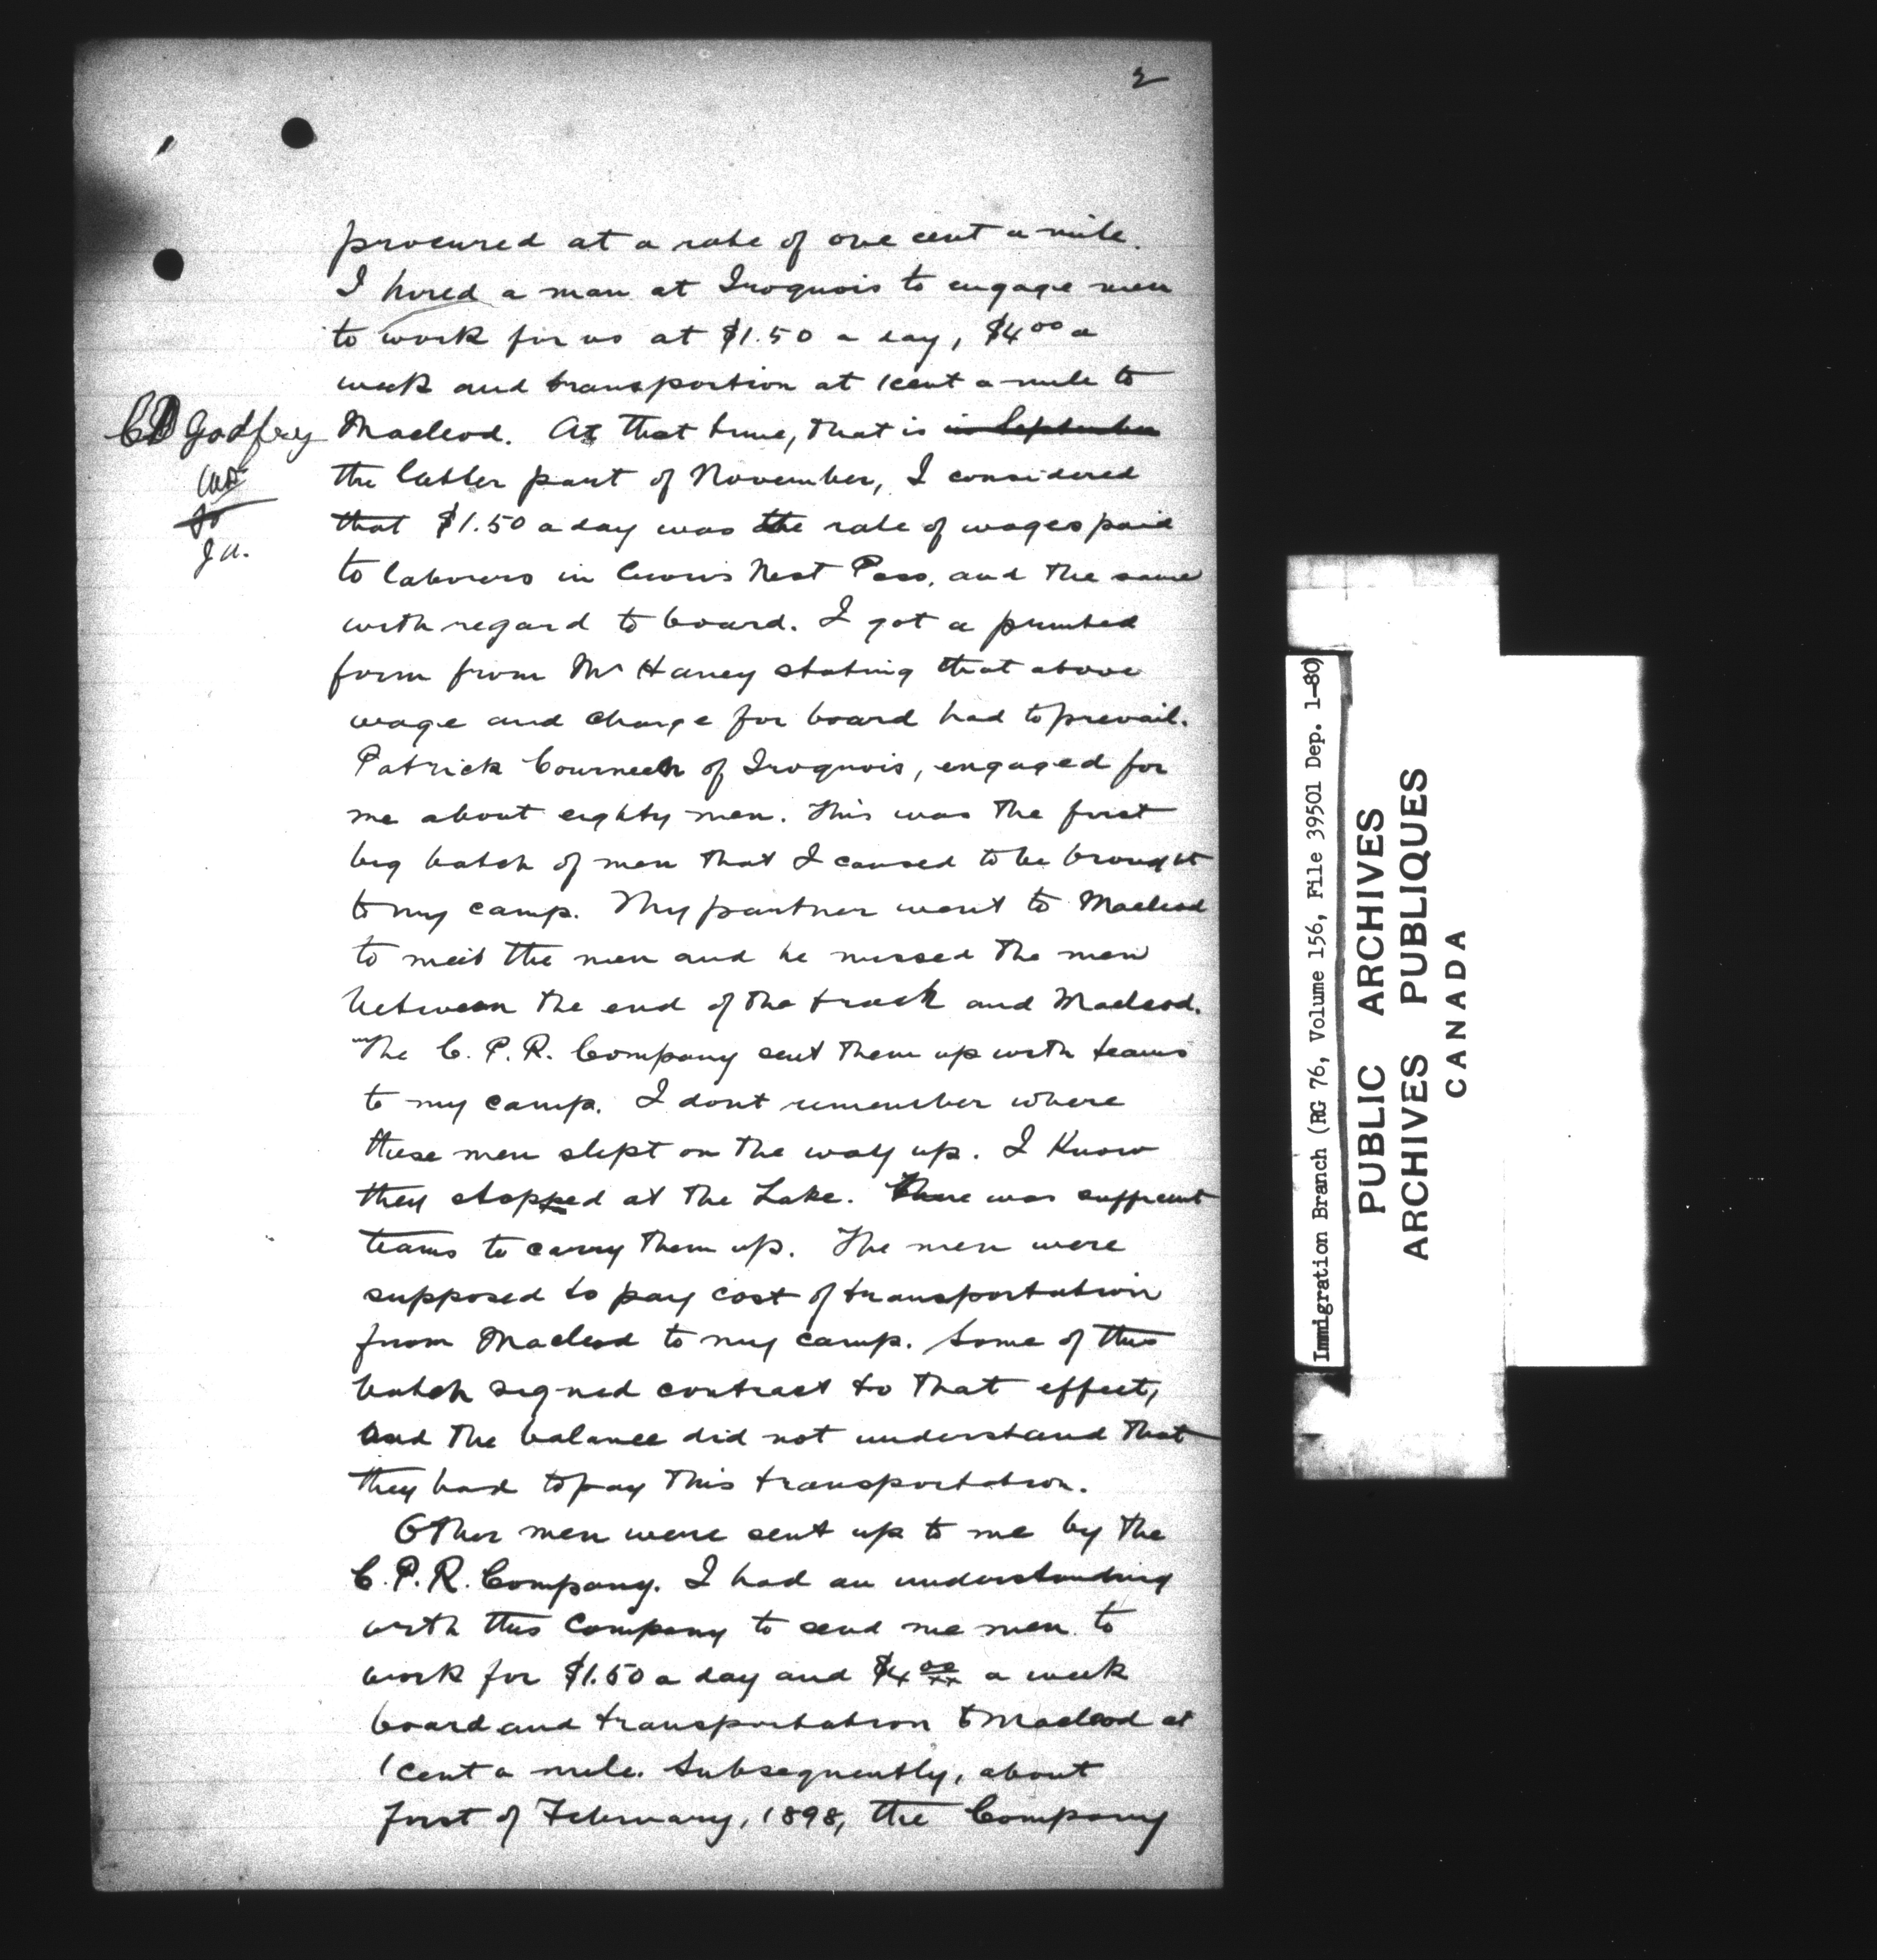 2
procured at a rate of one cent a mile.
I hired a man at Iroquois to engage men
to work for us at $1.50 a day, $4.00 a
week and transportion at 1 cent a mile to
CD Godfrey
Macleod. At that time, that is in September
the latter part of November, I considered
J.A.
that $1.50 a day was the rate of wages paid
to laborers in Crow's Nest Pass, and the same
with regard to board. I got a printed
form from Mr Haney stating that above
wage and charge for board had to prevail.
Patrick of Iroquois, engaged for
me about eighty men. This was the first
big batch of men that I caused to be brought
to my camp. My partner went to Macleod
to meet the men and he missed the men
between the end of the track and Macleod.
The C. P. R. Company sent them up with teams
to my camp. I dont remember where
these men slept on the way up. I Know
they stopped at the Lake. There was sufficient
teams to carry them up. The men were
supposed to pay cost of transportation
from Macleod to my camp. Some of this
batch signed contract to that effect,
and the balance did not understand that
they had to pay this transportation.
Other men were sent up to me by the
C. P. R. Company. I had an understanding
with this Company to send me men to
work for $1.50 a day and $4.00 a week
board and transportation to Macleod at
1 cent a mile. Subsequently, about
first of February, 1898, the Company
Immigration Branch (RG 76, Volume 156, File 39501 Dep. 1-80)
PUBLIC ARCHIVES
ARCHIVES PUBLIQUES
CANADA